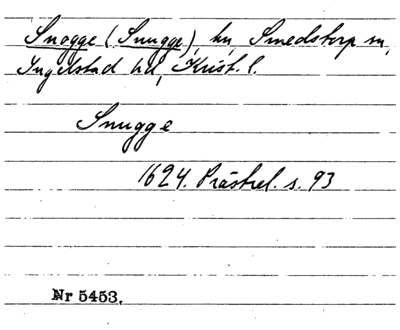 Snogge (Snugge), hu, Smedstorp sn,
Ingelstad hd, Krist. l.
Snugge
1624. Prästrel. s. 93
Nr 5453.